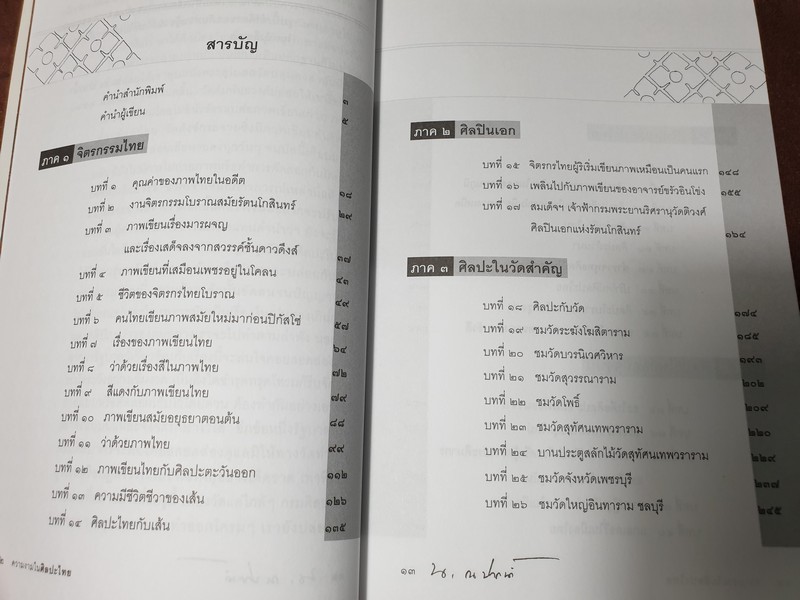 สารบัญ
คำนำสำนักพิมพ์ ๓
คำนำผู้เขียน ๕
ภาค ๑ จิตรกรรมไทย
บทที่ ๑ คุณค่าของภาพไทยในอดีต ๑๘
บทที่ ๒ งานจิตรกรรมโบราณสมัยรัตนโกสินทร์ ๒๙
บทที่ ๓ ภาพเขียนเรื่องมารผจญ
และเรื่องเสด็จลงจากสวรรค์ชั้นดาวดึงส์ ๓๗
บทที่ ๔ ภาพเขียนที่เสมือนเพชรอยู่ในโคลน ๔๓
บทที่ ๕ ชีวิตของจิตรกรไทยโบราณ ๔๙
บทที่ ๖ คนไทยเขียนภาพสมัยใหม่มาก่อนปิกัสโซ่ ๕๗
บทที่ ๗ เรื่องของภาพเขียนไทย ๖๔
บทที่ ๘ ว่าด้วยเรื่องสีในภาพไทย ๗๒
บทที่ ๙ สีแดงกับภาพเขียนไทย ๗๙
บทที่ ๑๐ ภาพเขียนสมัยอยุธยาตอนต้น ๘๘
บทที่ ๑๑ ว่าด้วยภาพไทย ๙๙
บทที่ ๑๒ ภาพเขียนไทยกับศิลปะตะวันออก ๑๑๒
บทที่ ๑๓ ความมีชีวิตชีวาของเส้น ๑๒๖
บทที่ ๑๔ ศิลปะไทยกับเส้น ๑๓๕
๒ ความงามในศิลปะไทย
ภาค ๒ ศิลปินเอก
บทที่ ๑๕ จิตรกรไทยผู้ริเริ่มเขียนภาพเหมือนเป็นคนแรก ๑๔๘
บทที่ ๑๖ เพลินไปกับภาพเขียนของอาจารย์ขรัวอินโข่ง ๑๕๕
บทที่ ๑๗ สมเด็จฯ เจ้าฟ้ากรมพระยานริศรานุวัดติวงศ์
ศิลปินเอกแห่งรัตนโกสินทร์ ๑๖๔
ภาค ๓ ศิลปะในวัดสำคัญ
บทที่ ๑๘ ศิลปะกับวัด ๑๗๔
บทที่ ๑๙ ชมวัดระฆังโฆสิตาราม ๑๘๕
บทที่ ๒๐ ชมวัดบวรนิเวศวิหาร ๑๙๓
บทที่ ๒๑ ชมวัดสุวรรณาราม ๒๐๒
บทที่ ๒๒ ชมวัดโพธิ์ ๒๐๙
บทที่ ๒๓ ชมวัดสุทัศนเทพวราราม ๒๒๐
บทที่ ๒๔ บานประตูสลักไม้วัดสุทัศนเทพวราราม ๒๒๙
บทที่ ๒๕ ชมวัดจังหวัดเพชรบุรี ๒๓๗
บทที่ ๒๖ ชมวัดใหญ่อินทาราม ชลบุรี ๒๔๕
๑๓ น. ณ ปากน้ำ